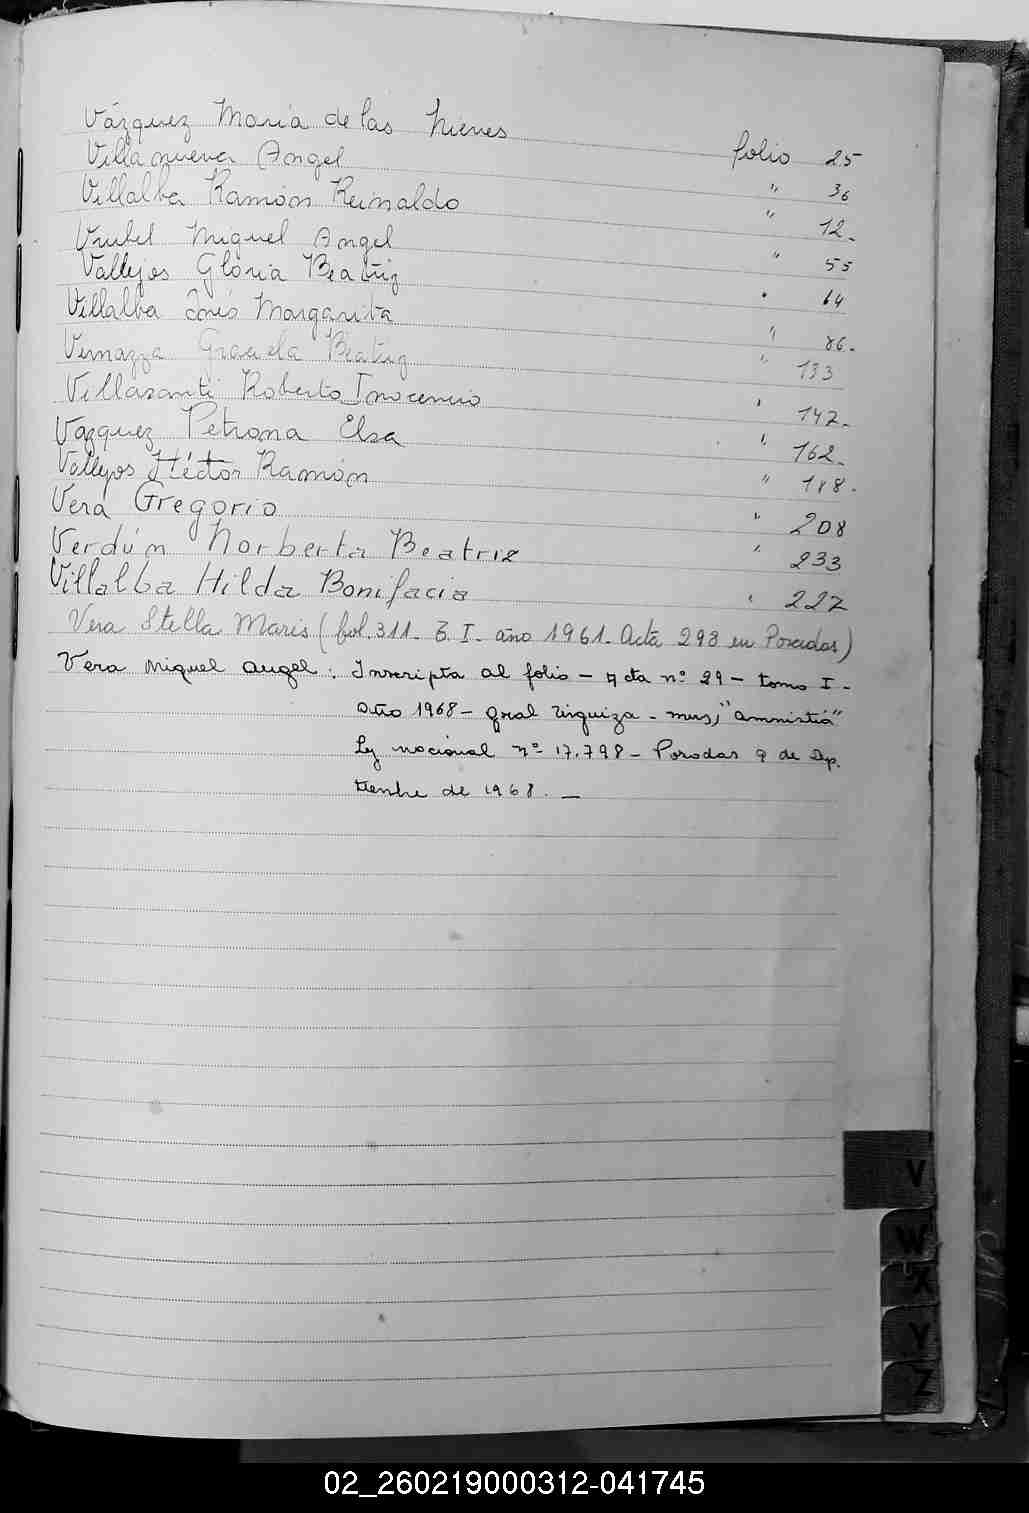 Vázquez Maria de las Nieves folio 25
Villanueva Angel " 36
Villalba Ramón Reinaldo " 12.
Miguel Angel " 55
Vallejos Gloria Beatriz " 64
Villalba Inés Margarita " 86.
Vernazza Graciela Beatriz " 133
Villasanti Roberto Inocencio " 142.
Vazquez Petrona Elsa " 162.
Vallejos Héctor Ramón " 188.
Vera Gregorio " 208
Verdún Norberta Beatriz " 233
Villalba Hilda Bonifacia " 227
Vera Stella Maris (fol. 311. T. I. año 1961. Acta 293 en Posadas)
Vera Miguel Angel: Inscripta al folio - Acta nº 29 - tomo I -
Año 1968 - Gral Urquiza - Mnes, "amnistia"
Ley nacional nº 17.798 - Posadas 9 de Sep.
tiembre de 1968. —
V
W
X
Y
Z
02_260219000312-041745